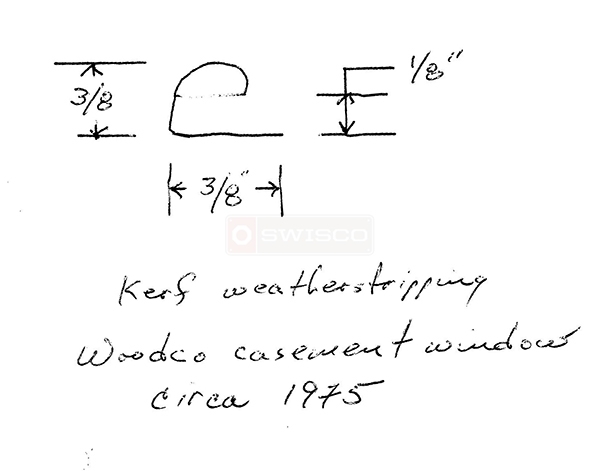 1/8"
3/8
3/8"
SWISCO
Kerf weatherstripping
Woodco casement window
circa 1975